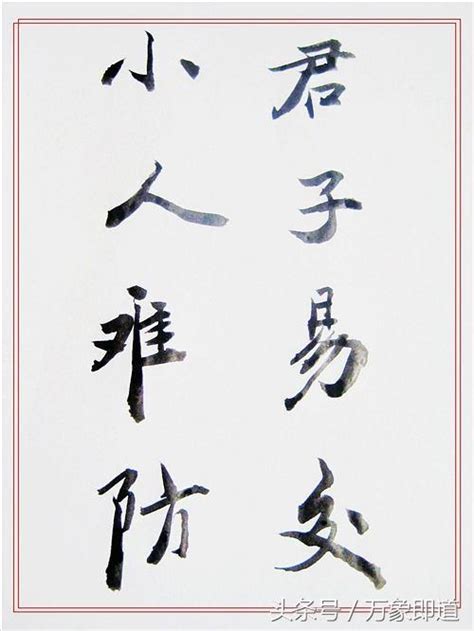 君子易交
小人难防
头条号/万象即道